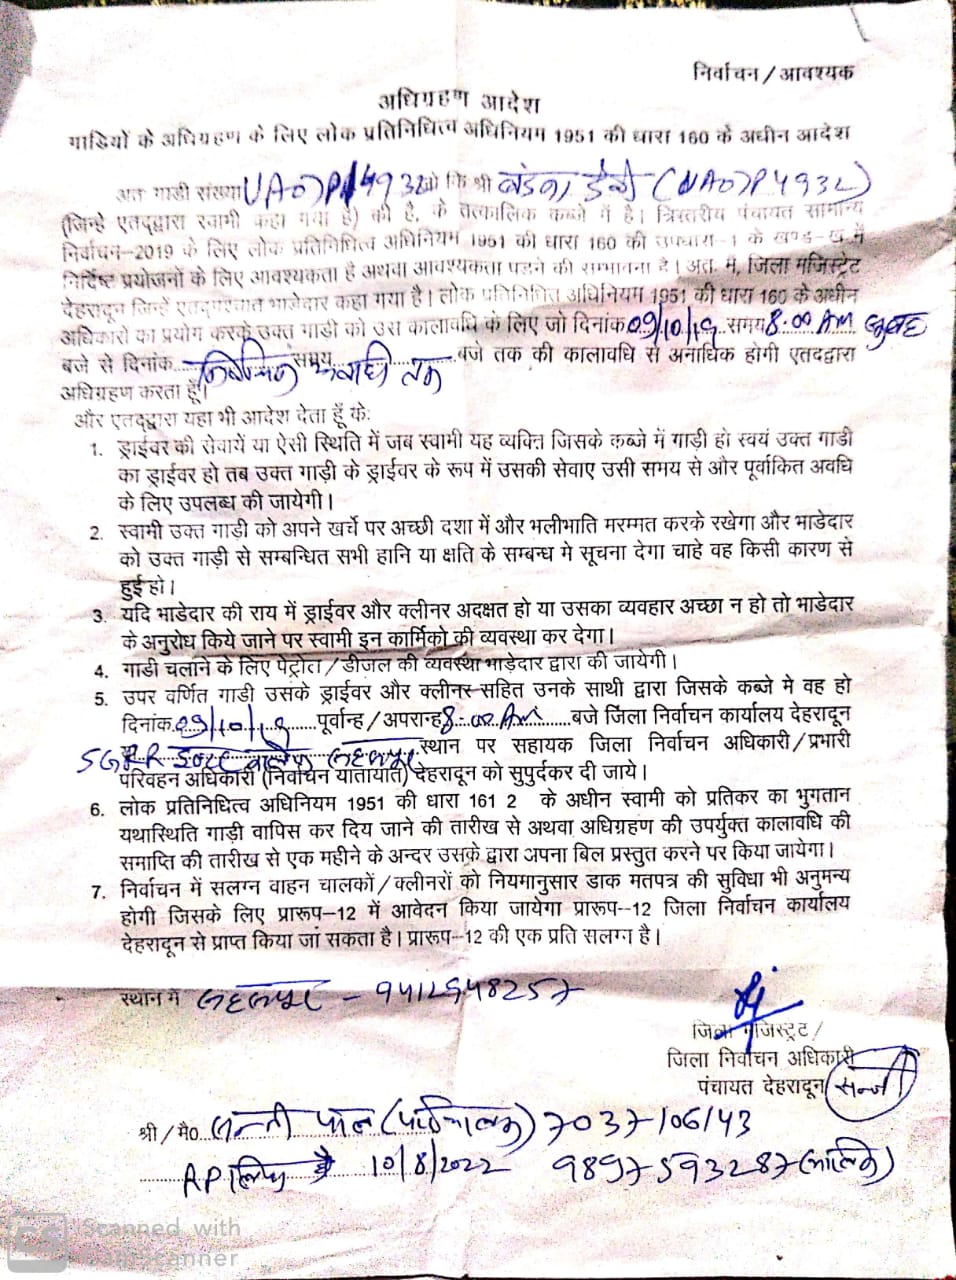 निर्वाचन/आवश्यक
अधिग्रहण आदेश
गाडियों के अधिग्रहण के लिए लोक प्रतिनिधित्व अधिनियम 1951 की धारा 160 के अधीन आदेश
अत गाडी संख्या UA07P 4932 जो कि श्री (UA07P4932)
(जिन्हे एतद्द्वारा स्वामी कहा गया है) की है, के तत्कालिक कब्जे में है। त्रिस्तरीय पंचायत सामान्य
निर्वाचन-2019 के लिए लोक प्रतिनिधित्व अधिनियम 1951 की धारा 160 की उपधारा-1 के खण्ड-ख में
निर्दिष्ट प्रयोजनों के लिए आवश्यकता है अथवा आवश्यकता पडने की सम्भावना है। अत. मै, जिला मजिस्ट्रेट
देहरादून जिन्हें एतद्पश्चात भाडेदार कहा गया है। लोक प्रतिनिधित अधिनियम 1951 की धारा 160 के अधीन
अधिकारों का प्रयोग करके उक्त गाडी को उस कालावधि के लिए जो दिनांक 09/10/19 समय 8:00 AM सुबह
बजे से दिनांक समय अवधि तक बजे तक की कालावधि से अनाधिक होगी एतद्द्वारा
अधिग्रहण करता हूँ।
और एतद्द्वारा यहा भी आदेश देता हूँ के:
1. ड्राईवर की सेवायें या ऐसी स्थिति में जब स्वामी यह व्यक्ति जिसके कब्जे में गाडी हो स्वयं उक्त गाडी
का ड्राईवर हो तब उक्त गाडी के ड्राईवर के रूप में उसकी सेवाए उसी समय से और पूर्वाकित अवधि
के लिए उपलब्ध की जायेगी।
2. स्वामी उक्त गाडी को अपने खर्चे पर अच्छी दशा में और भलीभाति मरम्मत करके रखेगा और भाडेदार
को उक्त गाडी से सम्बन्धित सभी हानि या क्षति के सम्बन्ध मे सूचना देगा चाहे वह किसी कारण से
हुई हो।
3. यदि भाडेदार की राय में ड्राईवर और क्लीनर अदक्षत हो या उसका व्यवहार अच्छा न हो तो भाडेदार
के अनुरोध किये जाने पर स्वामी इन कार्मिको की व्यवस्था कर देगा।
4. गाडी चलाने के लिए पेट्रोल/डीजल की व्यवस्था भाड़ेदार द्वारा की जायेगी।
5. उपर वर्णित गाडी उसके ड्राईवर और क्लीनर सहित उनके साथी द्वारा जिसके कब्जे मे वह हो
दिनांक 09/10/19 पूर्वान्ह/अपरान्ह 8:00 AM बजे जिला निर्वाचन कार्यालय देहरादून
SGRR स्थान पर सहायक जिला निर्वाचन अधिकारी/प्रभारी
परिवहन अधिकारी (निर्वाचन यातायात) देहरादून को सुपुर्दकर दी जाये।
6. लोक प्रतिनिधित्व अधिनियम 1951 की धारा 161 2 के अधीन स्वामी को प्रतिकर का भुगतान
यथास्थिति गाड़ी वापिस कर दिय जाने की तारीख से अथवा अधिग्रहण की उपर्युक्त कालावधि की
समाप्ति की तारीख से एक महीने के अन्दर उसके द्वारा अपना बिल प्रस्तुत करने पर किया जायेगा।
7. निर्वाचन में सलग्न वाहन चालकों/क्लीनरों को नियमानुसार डाक मतपत्र की सुविधा भी अनुमन्य
होगी जिसके लिए प्रारूप-12 में आवेदन किया जायेगा प्रारूप-12 जिला निर्वाचन कार्यालय
देहरादून से प्राप्त किया जा सकता है। प्रारूप-12 की एक प्रति सलग्न है।
स्थान में
जिला मजिस्ट्रट/
जिला निर्वाचन अधिकारी
पंचायत देहरादून
श्री/मै० सन्नी पाल 7037106143
10/8/2022 9897593287 (मालिक)
CS Scanned with
CamScanner